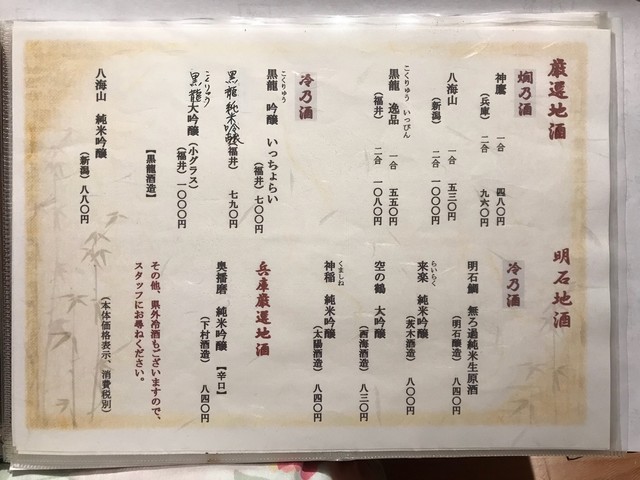 厳選地酒
燗乃酒
神鷹
(兵庫) 一合 四八〇円
二合 九六〇円
八海山
(新潟) 一合 五三〇円
二合 一〇〇〇円
こくりゅう いっぴん
黒龍 逸品
(福井) 一合 五五〇円
二合 一〇八〇円
冷乃酒
こくりゅう
黒龍 吟醸 いっちょらい
(福井) 七〇〇円
黒龍 純米吟醸
(福井) 七九〇円
こくりゅう
黒龍大吟醸 (小グラス)
(福井) 一〇〇〇円
【黒龍酒造】
八海山 純米吟醸
(新潟) 八八〇円
明石地酒
冷乃酒
明石鯛 無ろ過純米生原酒
(明石醸造) 八四〇円
らいらく
来楽 純米吟醸
(茨木酒造) 八〇〇円
空の鶴 大吟醸
(西海酒造) 八三〇円
くましね
神稲 純米吟醸
(太陽酒造) 八四〇円
兵庫厳選地酒
奥播磨 純米吟醸 【辛口】
(下村酒造) 八四〇円
その他、県外冷酒もございますので、
スタッフにお尋ねください。
(本体価格表示、消費税別)